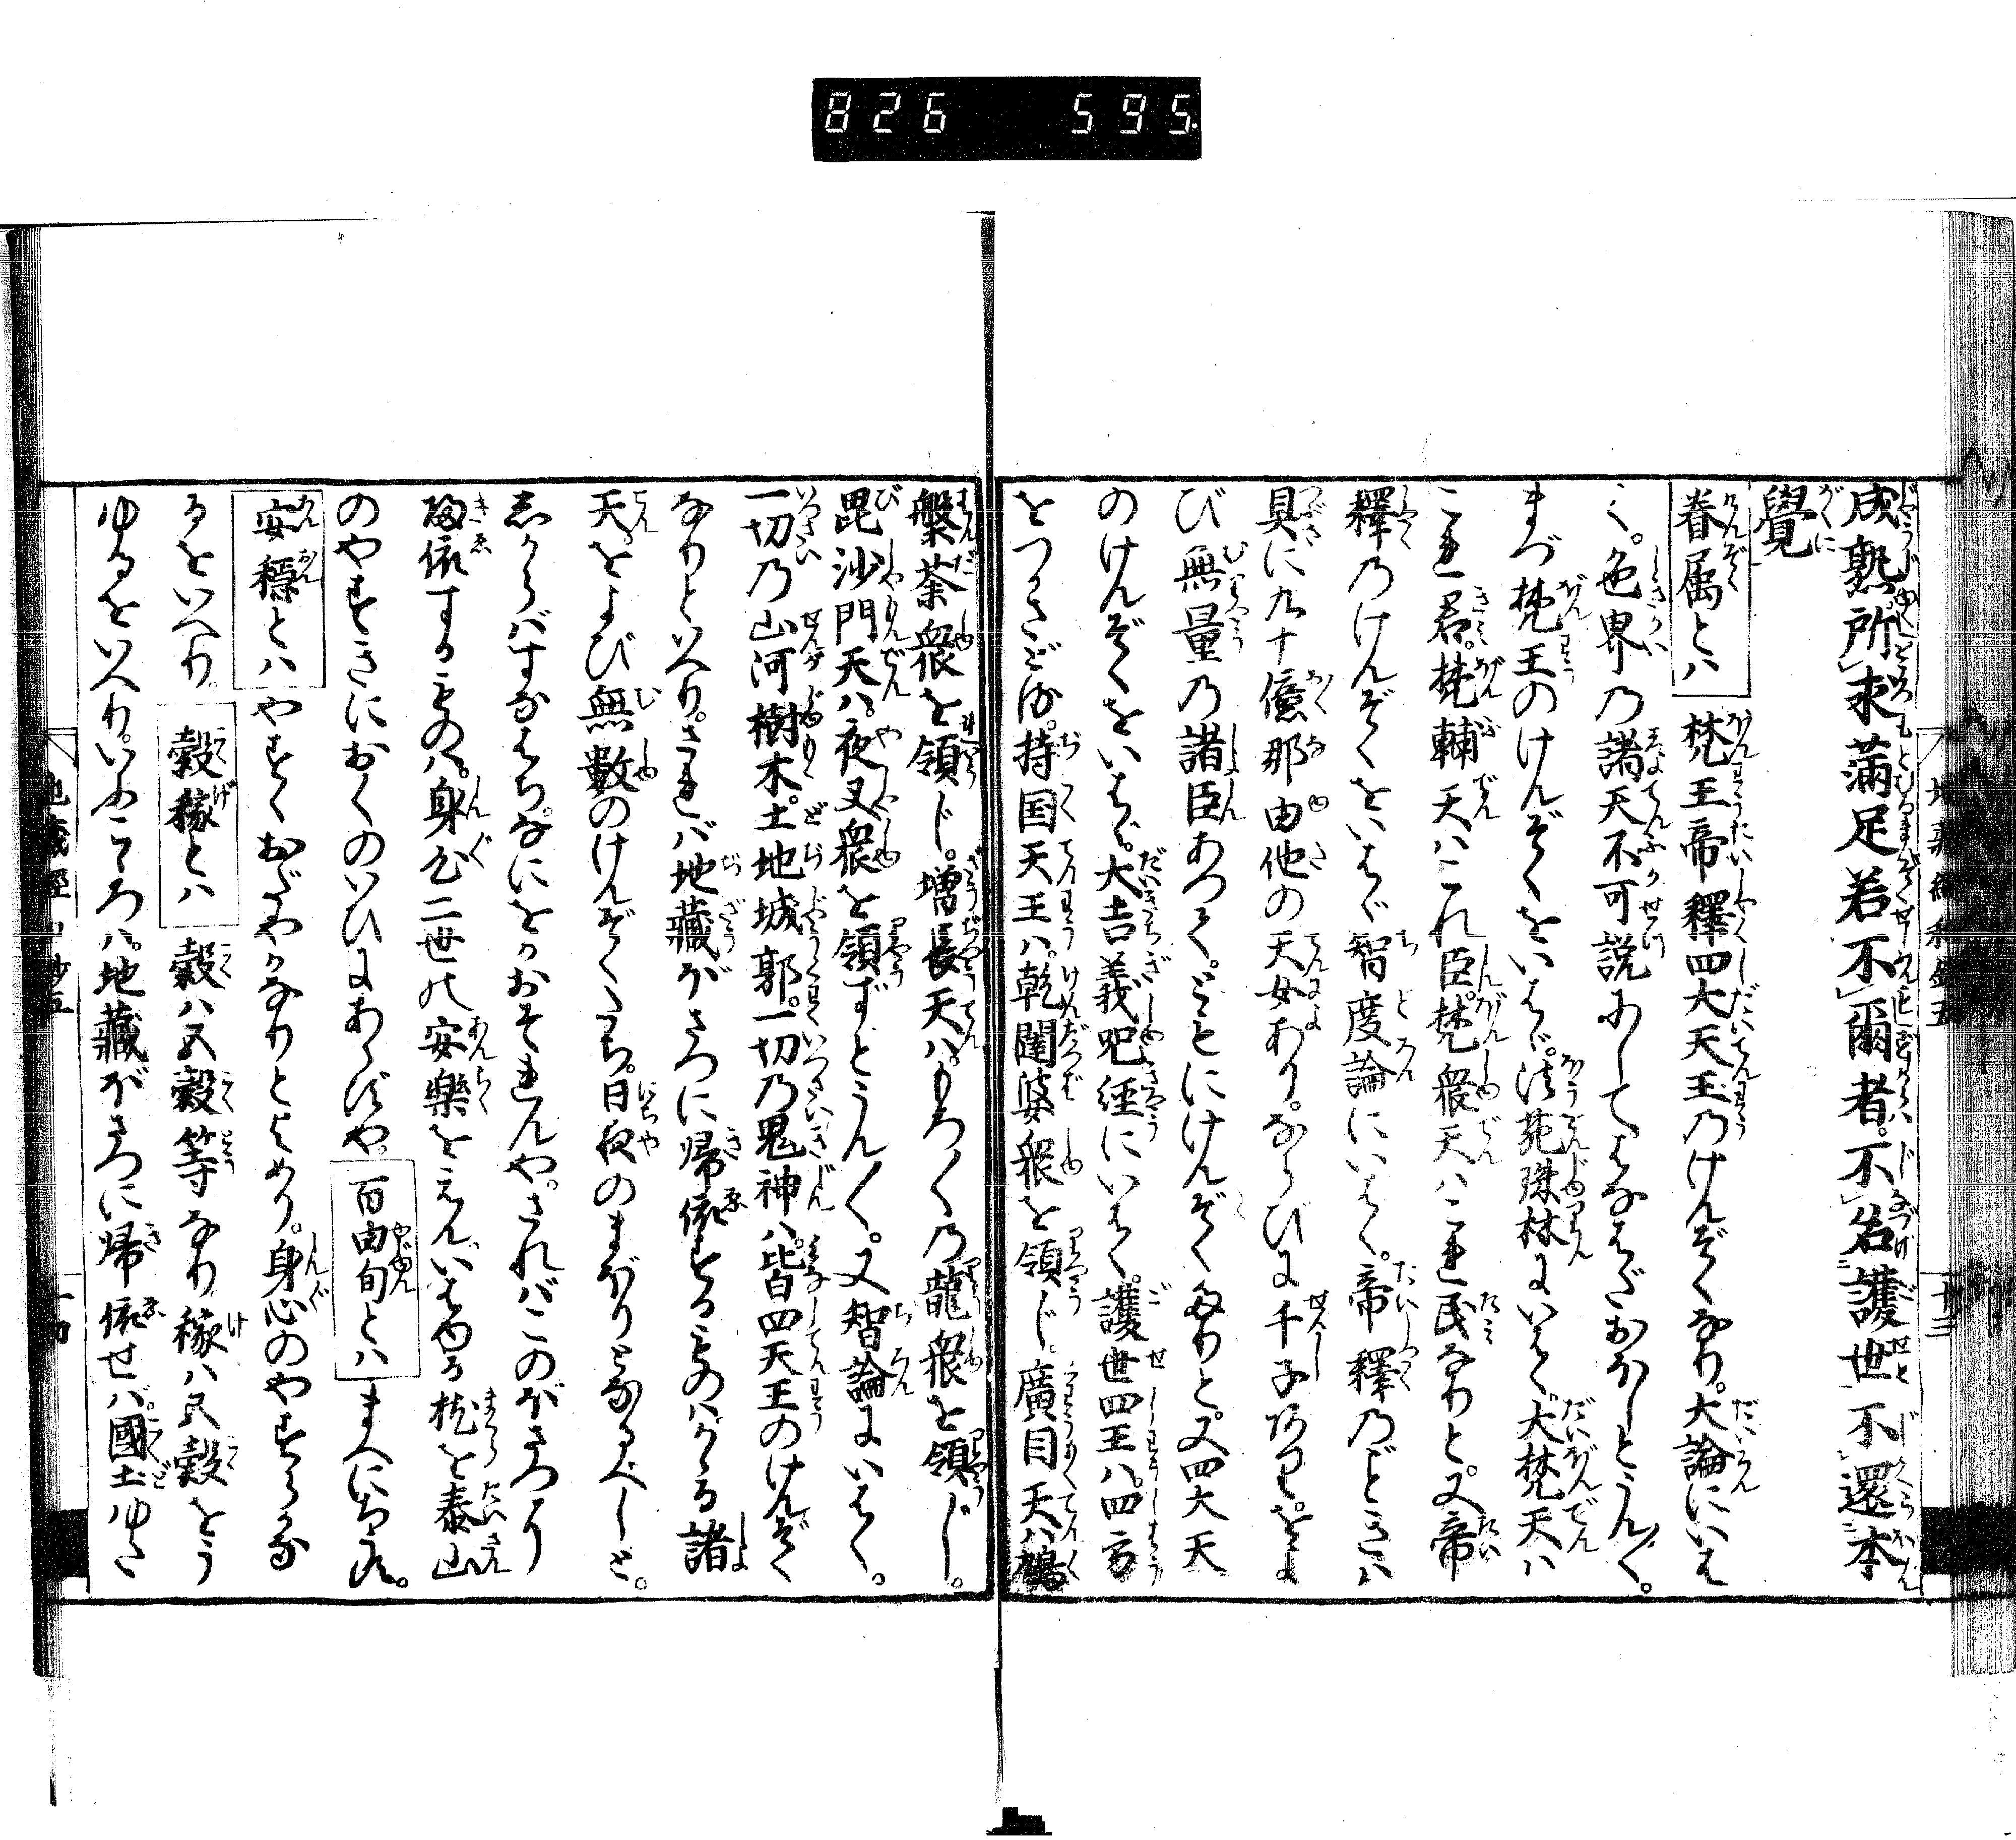 826 595
成熟所求滿足若不爾者不名護世不還本
覺
眷属とハ 梵王帝釋四大天王乃けんぞくなり。大論にいは
く。色界乃諸天不可説にしてはなはだおほしとうん〱。
まづ梵王のけんぞくをいはゞ。法苑珠林にいはく。大梵天ハ
これ君。梵輔天ハこれ臣。梵衆天ハこれ民なりと。又帝
釋乃けんぞくをいはゞ智度論にいはく。帝釋乃ごときハ
具に九十億那由他の天女あり。ならびに千子
び無量乃諸臣あつて。ともにけんぞくなりと。又四大天
のけんぞくをいはゞ。大吉義呪經にいはく。護世四王ハ。四方
をつかさどる。持国天王ハ。乾闥婆衆を領じ。廣目天ハ鳩
槃荼衆を領じ。増長天ハ。もろ〱乃龍衆を領じ。
毘沙門天ハ。夜叉衆を領ずとうん〱。又智論にいはく。
一切乃山河樹木。土地城郭。一切乃鬼神ハ。皆四天王のけんぞく
なりといへり。されバ地藏ぼさつに帰依するものハかゝる諸
天をよび無数のけんぞくたち。日夜のまぼりとなるべしと。
しからバすなはち。なにをかおそれんや。されバこのぼさつに
歸依するものハ。身心二世の安樂をえん。いはゆる枕を泰山
のやすきにおくのいひにあらずや。 百由旬とハ まへにおなし。
安穩とハ やすくおだやかなりとよめり。身心のやすらかな
るをいへり。 穀稼とハ 穀ハ五穀等なり稼ハ民穀をう
ゆるをいへり。いふこころハ。地藏ぼさつに帰依せバ。國土ゆた